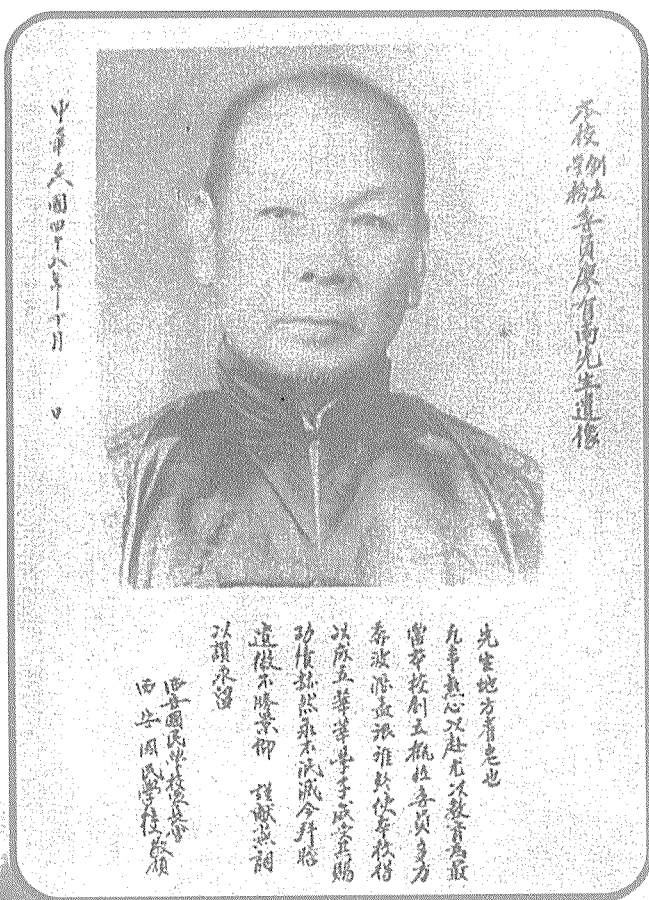 本校創立
學校委員廖有南先生遺像
先生地方耆老也
凡事熱心以赴尤次教育為最
當本校創立概位委員多方
奔波洱盡眾難終使本校得
以成立莘莘學子咸受其賜
功績赫然永不泯滅今拜瞻
遺像不勝景仰 謹獻蕪詞
以讚永留
西安國民學校家長會
西安國民學校敬頌
中華民國四十八年十月 日